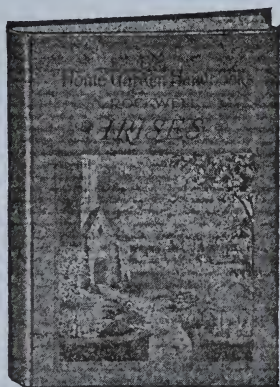 Home Garden Handbooks
ROCKWELL
IRISES